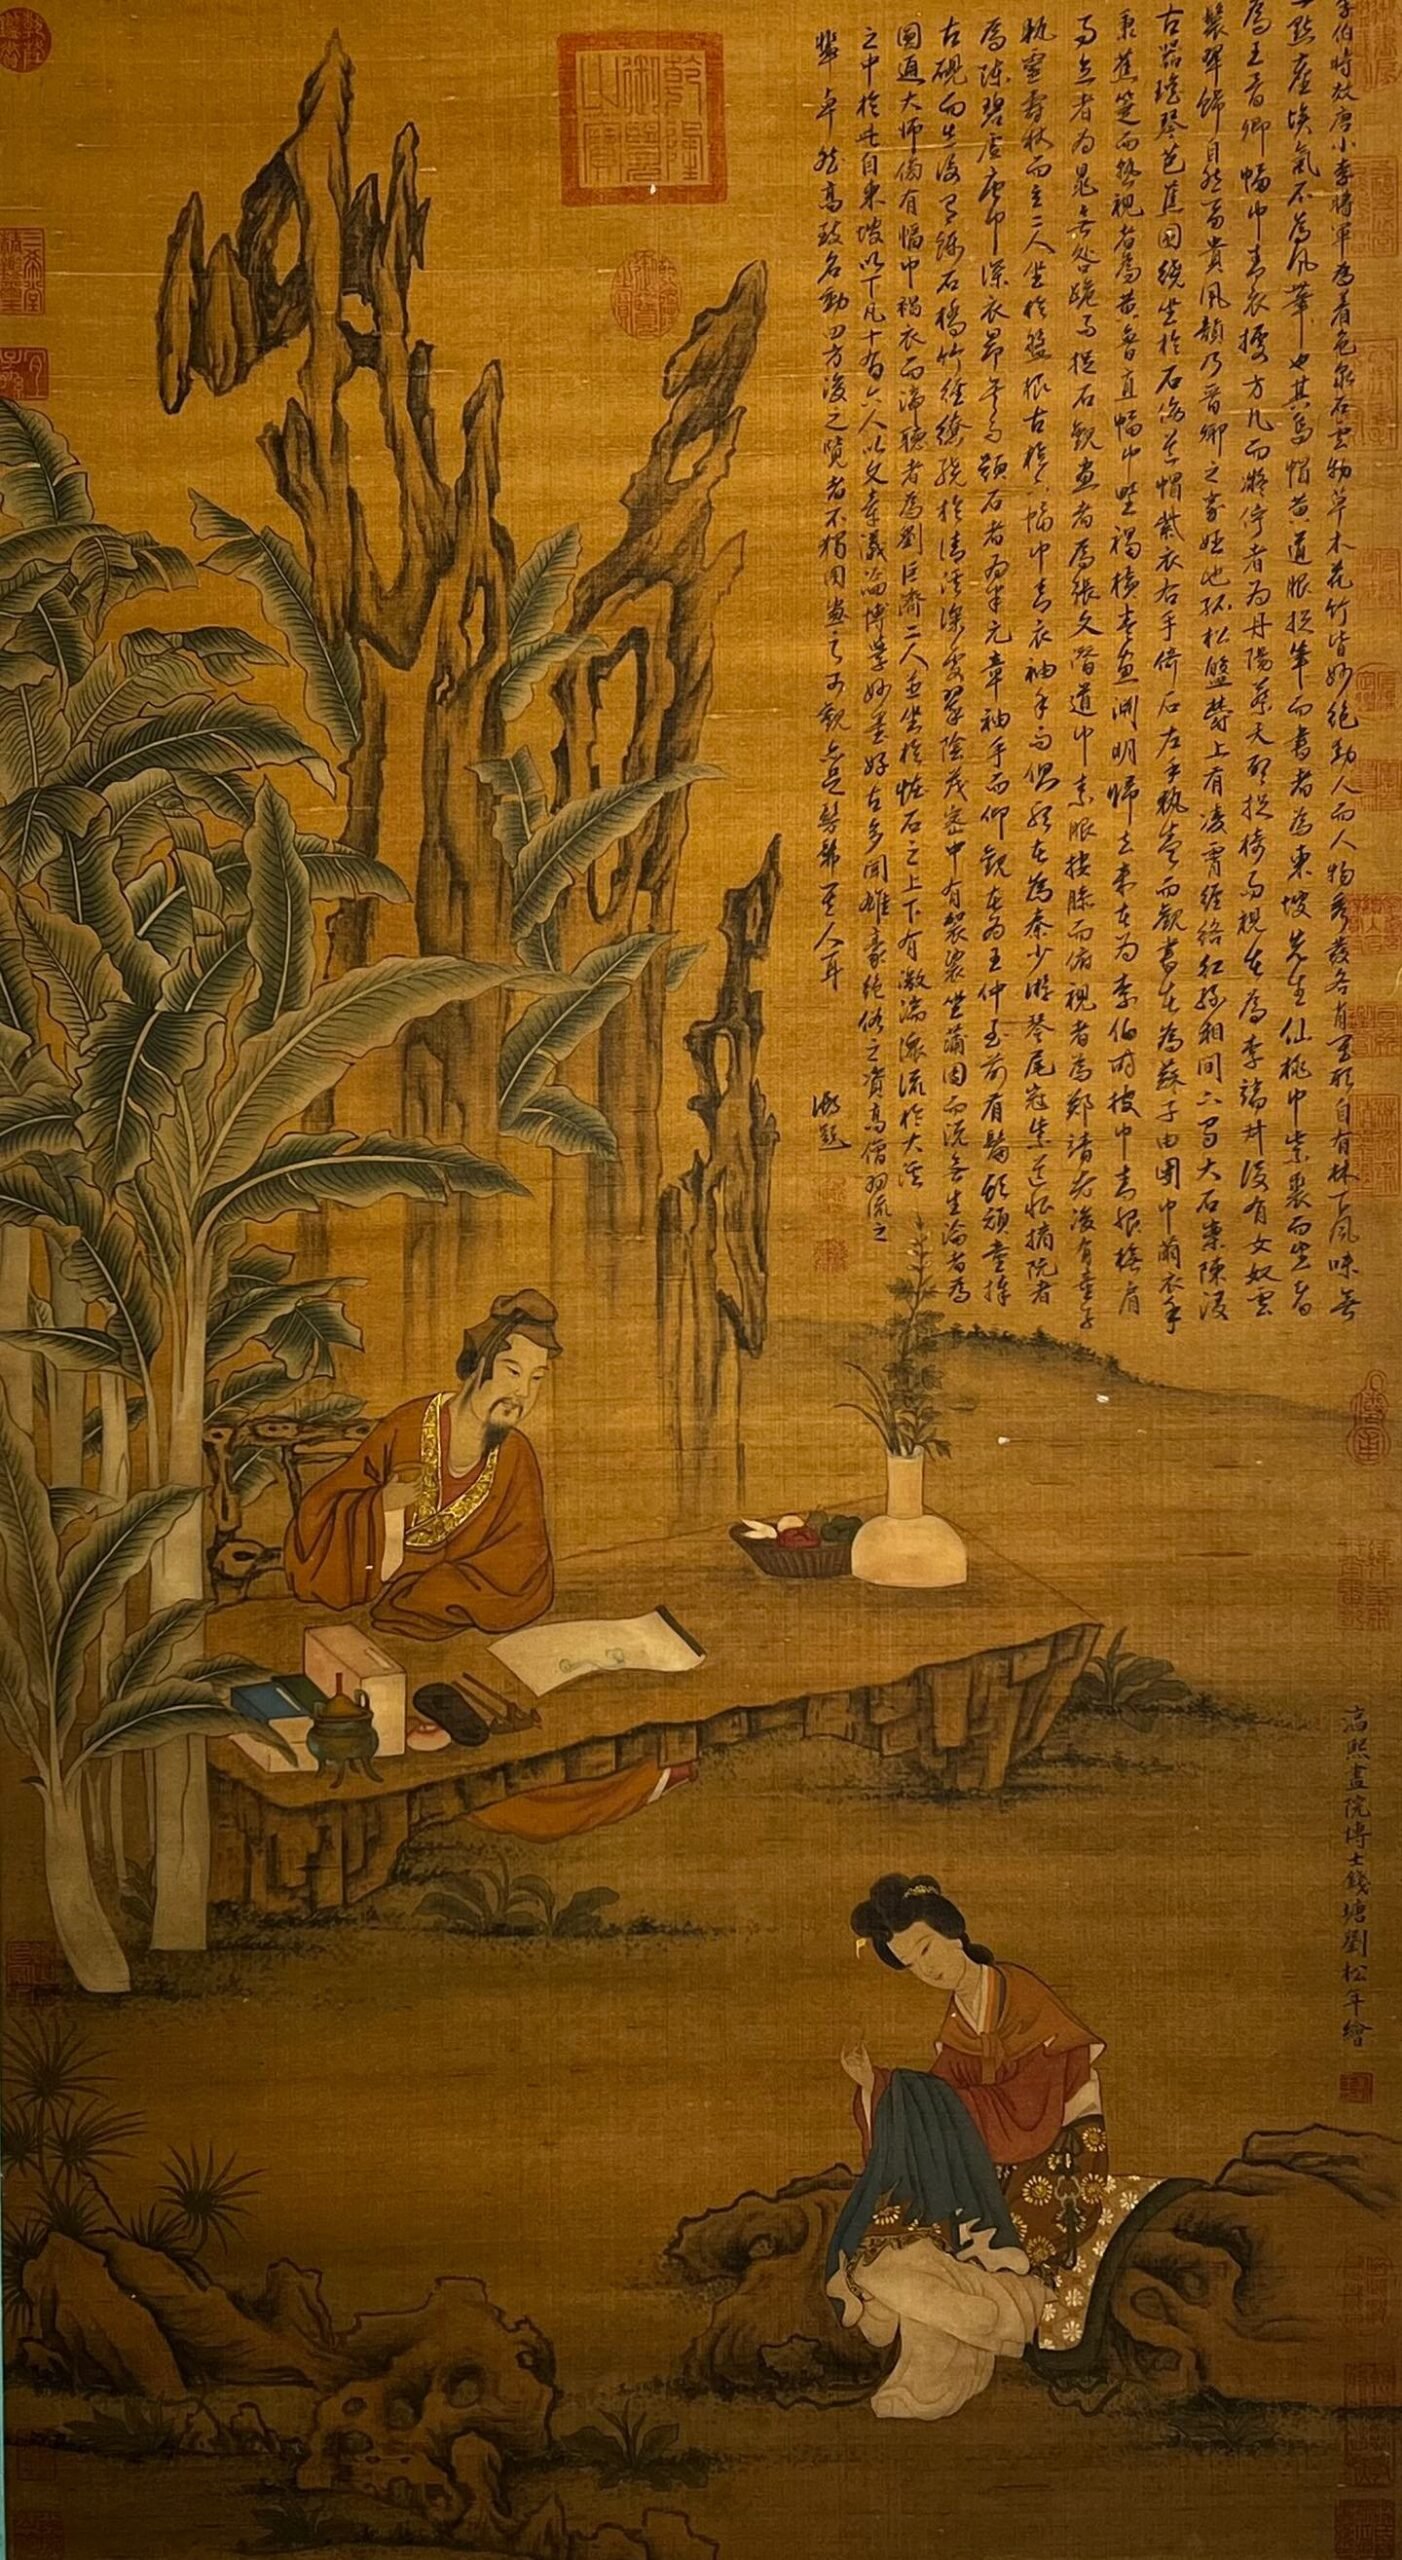 李伯時效唐小李將軍為着色泉石雲物草木花竹皆妙絕動人而人物秀發各肖其形自有林下風味無
一點塵埃氣不為凡筆也其烏帽黃道服捉筆而書者為東坡先生仙桃巾紫裘而坐者
為王晉卿幅巾青衣據方几而凝佇者為丹陽蔡天啟捉椅而視者為李端叔後有女奴雲
鬟翠飾自然富貴風韻乃晉卿之家姬也孤松盤鬱上有凌霄纏絡紅綠相間下有大石案陳設
古器瑤琴芭蕉圍繞坐於石傍道帽紫衣右手倚石左手執卷而觀書者為蘇子由團巾繭衣手
秉蕉箑而熟視者為黃魯直幅巾野褐橫卷畫淵明歸去來者為李伯時披巾青服撫肩
而立者為晁無咎跪而捉石觀畫者為張文潛道巾素服按膝而俯視者為鄭靖老後有童子
執靈壽杖而立二人坐於盤根古檜下幅巾青衣袖手而側聽者為秦少游琴尾冠紫道服摘阮者
為陳碧虛唐巾深衣昂首而題石者為米元章袖手而仰觀者為王仲至前有鬅頭頑童捧
古硯而立後有錦石橋竹徑繚繞於清溪深處翠陰茂密中有袈裟坐蒲團而說無生論者為
圓通大師傍有幅巾褐衣而諦聽者為劉巨濟二人並坐於怪石之上下有激湍潨流於大溪
之中於此自東坡以下凡十有六人以文章議論博學妙墨好古多聞雄豪絕俗之資高僧羽流之
輩卓然高致名動四方後之覽者不獨圖畫之可觀亦足髣髴其人耳
御題
高熙畫院博士錢塘劉松年繪
乾隆御覽之寶
三希堂精鑑璽
宜子孫